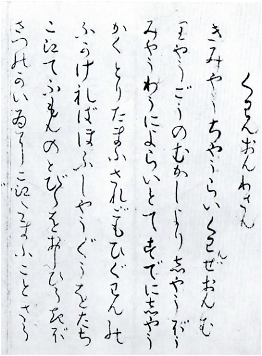 くわんおんわさん
きみやうちやうらいくわんぜおんむ
りやうごうのむかしより志やうぼう
みやうわうによらいとてすでに志やう
かくとりたまふされどもひぐわんの
ふかければほふしやうぐうをたち
こえてふもんのとびらをおしひらきぼ
さつのかいゐ こえたまふことさら